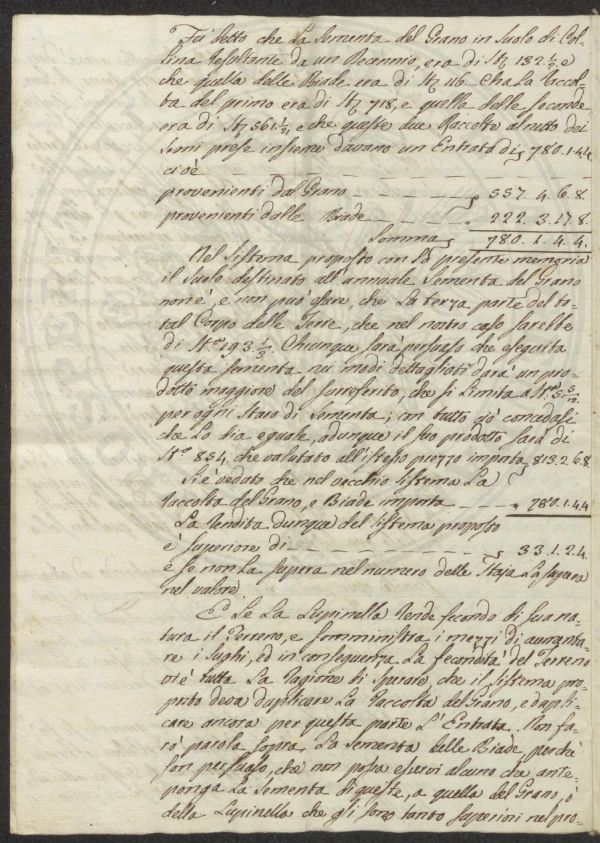 Fù detto che La Sementa del Grano in Suolo di Col-
lina resultante da un Decennio, era di St. 132 1/2 e
che quella delle Biade era di St. 116. Cha La Raccol-
ta del primo era di St. 718, e quella delle Seconde
era di St. 561 1/2, e che queste due Raccolte al netto dei
Semi prese insieme davano un Entrata di 780.1.4.4
cioè
provenienti dal Grano 557. 4. 6. 8.
provenienti dalle Biade 222. 3. 17. 8.
Somma 780. 1. 4. 4.
Nel Sistema proposto con La presente memoria
il Suolo destinato all'annuale Sementa del Grano
non è, e non può essere, che La terza parte del to-
tal Corpo delle Terre, che nel nostro caso sarebbe
di St. 193 1/3. Chiunque sarà persuaso che eseguita
questa sementa nei modi dettagliati darà un pro-
dotto maggiore del surreferito, che si Limita a St. 5 5/12
per ogni Staro di Sementa; con tutto ciò concedasi
che Lo dia eguale, adunque il suo prodotto sarà di
St. 854, che valutato all'istesso prezzo importa 813.2.6.8
Si è veduto che nel vecchio Sistema La
Raccolta del Grano, e Biade importa 780.1.4.4
La Rendita dunque del Sistema proposto
è Superiore di 33.1.2.4.
e se non La supera nel numero delle Staja La supera
nel valore.
E Se La Lupinella rende secondo di sua na-
tura il Terreno, e somministra i mezzi di aumenta-
re i Sughi, ed in conseguenza La fecondità del Terreno
vi è tutta La Ragione di Sperare, che il Sistema pro-
posto deva duplicare La Raccolta del Grano, e dupli-
care ancora per questa parte L'Entrata. Non fa-
rò parola sopra La Sementa delle Biade, perchè
son persuaso, che non possa esservi alcuno che ante-
ponga La Sementa di queste, a quella del Grano, o
della Lupinella che gli sono tanto superiori nel pro-